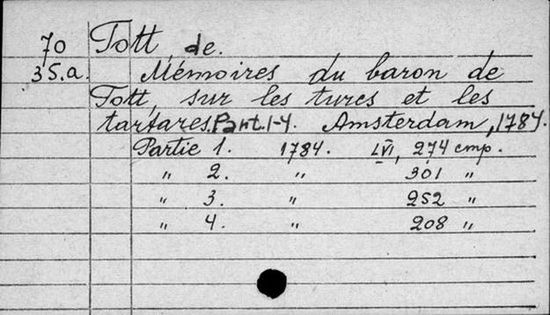 70 Tott, de.
35.a. Mémoires du baron de
Tott, sur les turcs et les
tartares. Part. 1-4. Amsterdam, 1784.
Partie 1. 1784. LVI, 274 cmp.
" 2. " 301 "
" 3. " 252 "
" 4. " 208 "